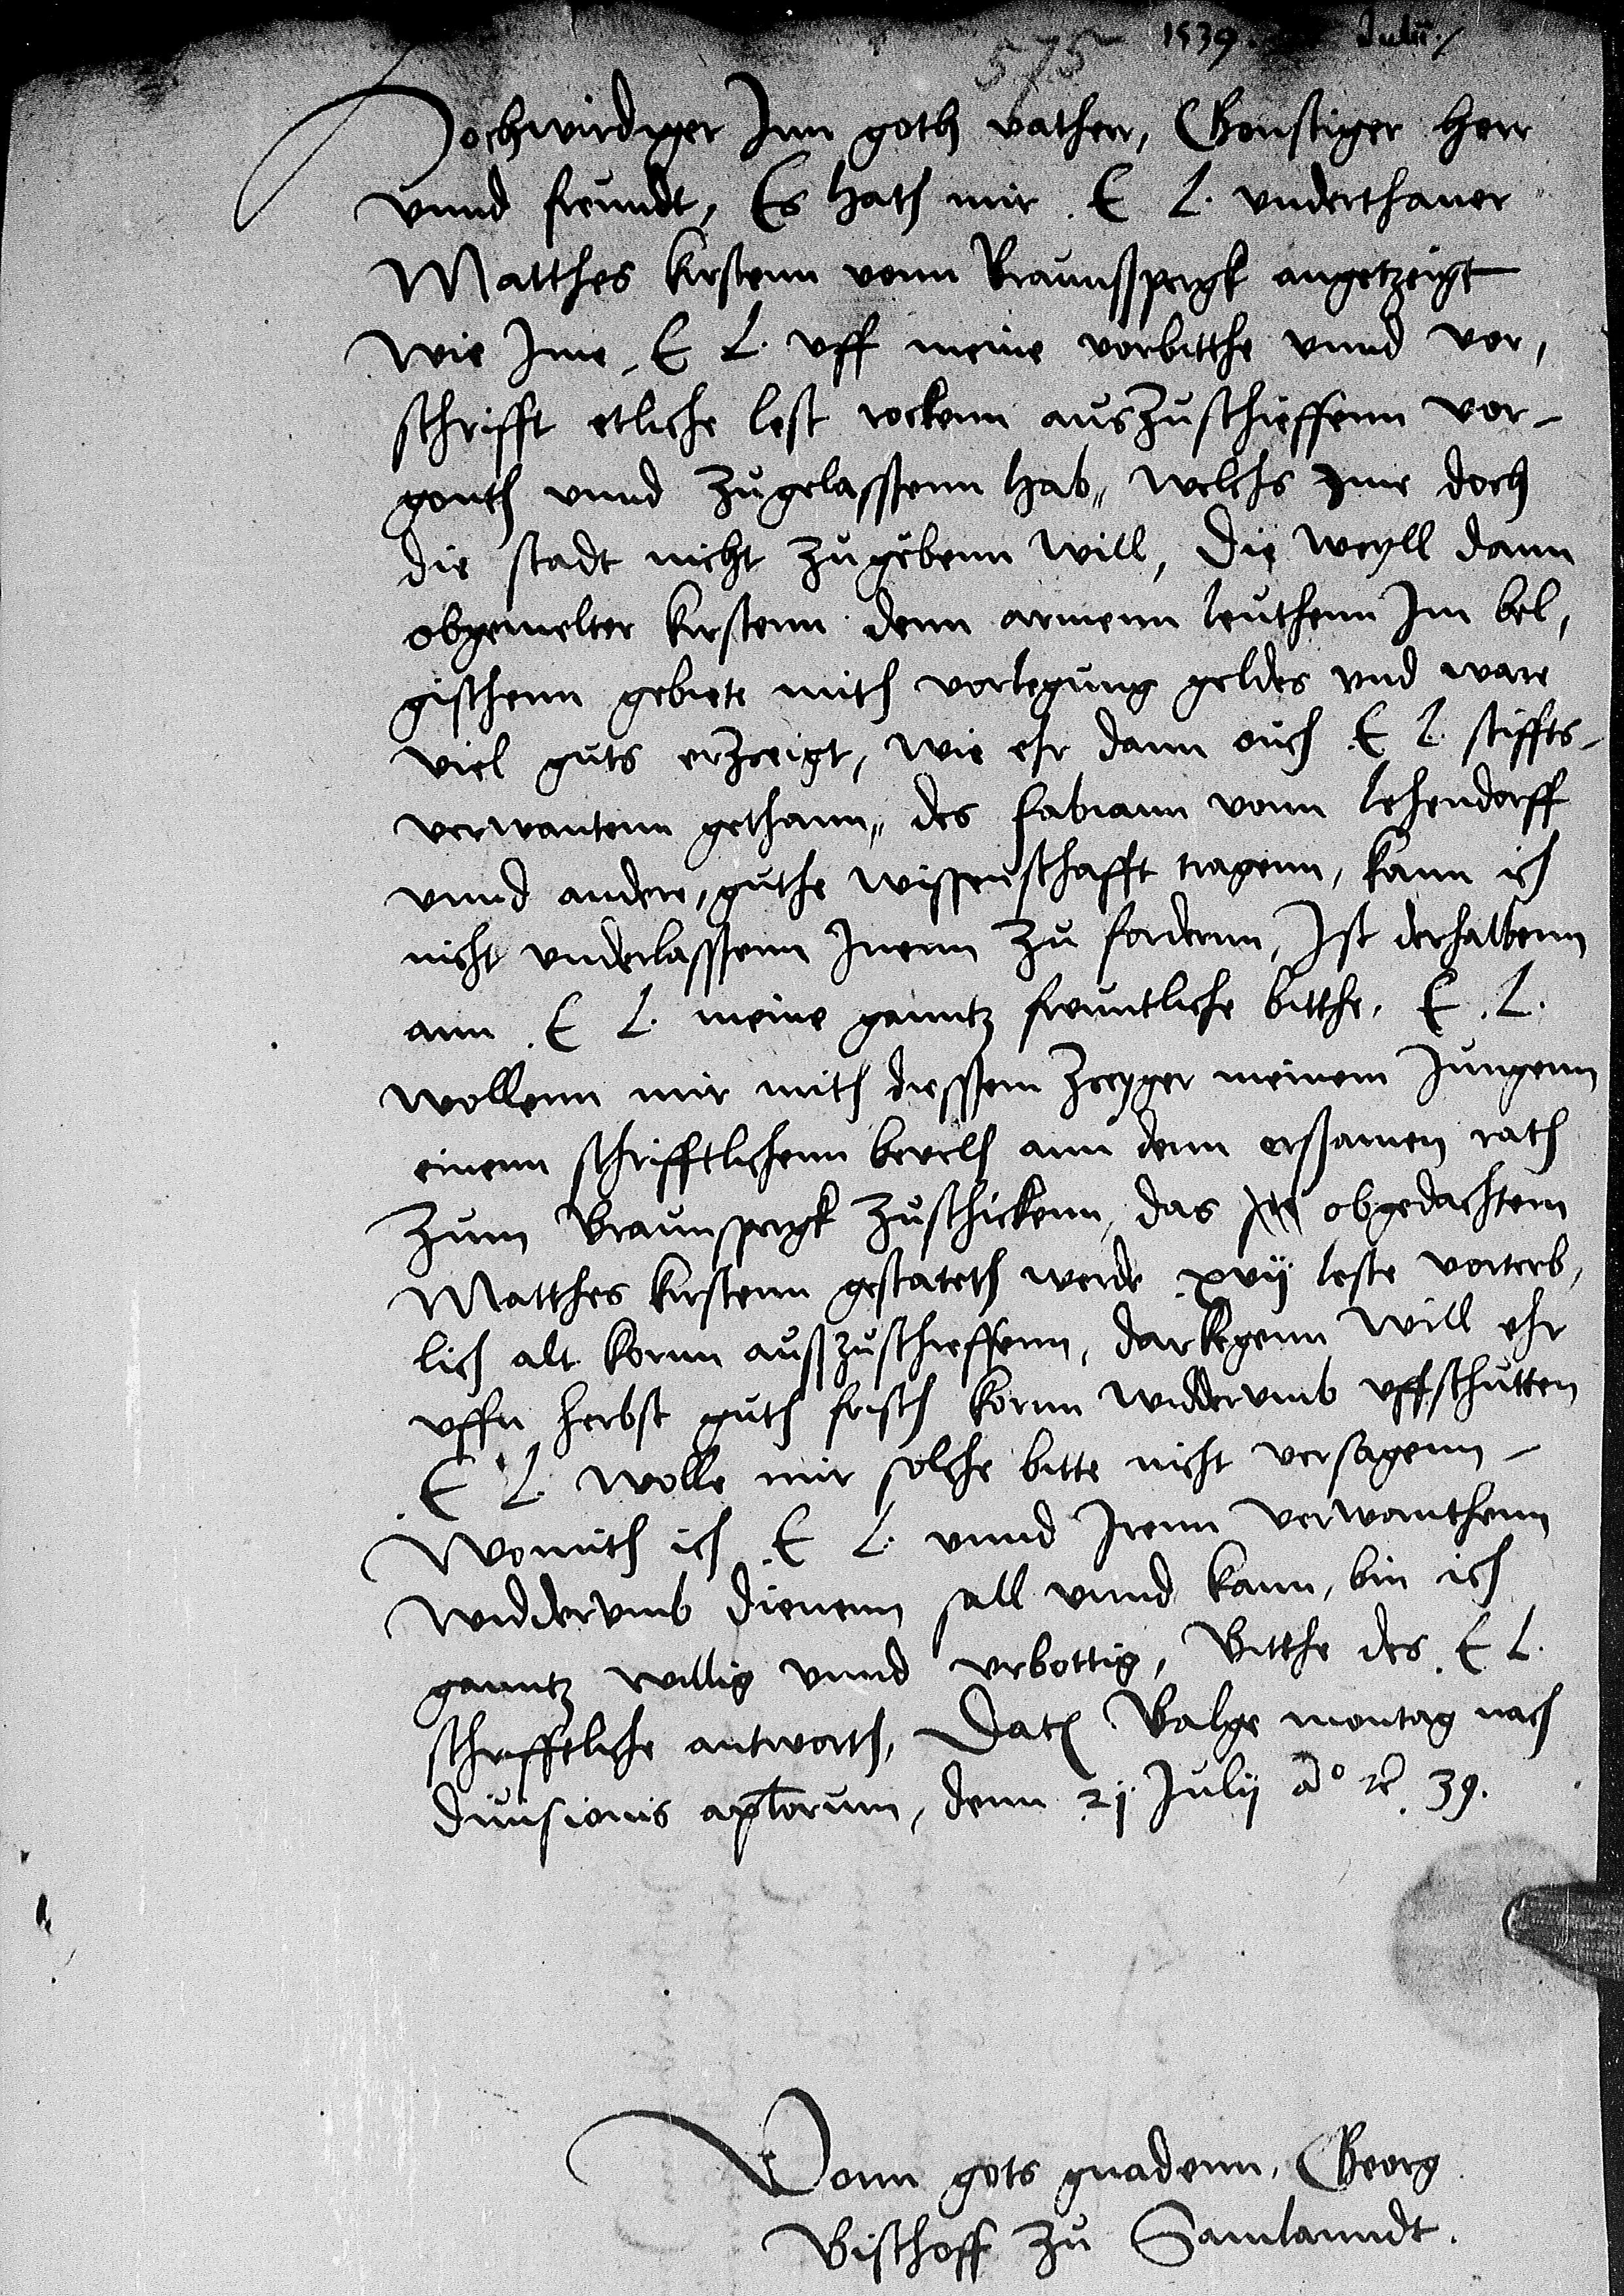 1539. Julii /
575
Hochwirdiger Inn goth vather, Gonstiger herr
vnnd freundt, Es hath mir .E L. vnderthaner
Matthes kirstenn vonn Braunssprigk angetzeigt
wie Ime .E L. vff meine vorbitthe vnnd vor,
schrifft etliche lest rockenn auszuschieffenn vor-
gonth vnnd zugelasstenn hab,, welchs Ime doch
die stadt nicht zugebenn will, Die weyll dann
obgemelter kirstenn denn armenn leuthenn Im bel,
gischenn gebiete mith vorlegung geldes vnd ware
viel guts erzeigt, wie ehr dann auch .E L. stiffts-
verwantenn gethann,, des fabiann vonn lehendorff
vnnd andere, guthe wissenschafft tragenn, kann ich
nicht vnderlasstenn Inenn zu fordernn, Ist derhalbenn
ann .E L. meine ganntz freuntliche bitthe. E .L.
wollenn mir mith diesstem zeyger meinem Jungenn
einenn schrifftlichenn bevelh ann denn ersamen rath
zum Braunsprigk zuschickenn, das obgedachtem
Matthes kirstenn gestateth werde .xvij leste vorterb,
lich alt kornn auszzuschieffenn, darkegenn will ehr
vffn herbst guth frisch kornn widdervmb vffschutten
.E L. wolle mir solche bitte nicht versagenn-
Womith ich .E L. vnnd Irenn verwanthenn
widdervmb dienenn sall vnnd kann, bin ich
ganntz willig vnnd vrbottig, Bitthe des .E L.
schrifftliche antworth, Dat Balge montag nach
diuisionis aplorum, denn 21 Julij ao rc. 39.
Vonn gots gnadenn, Georg
Bischoff zu Samlanndt.